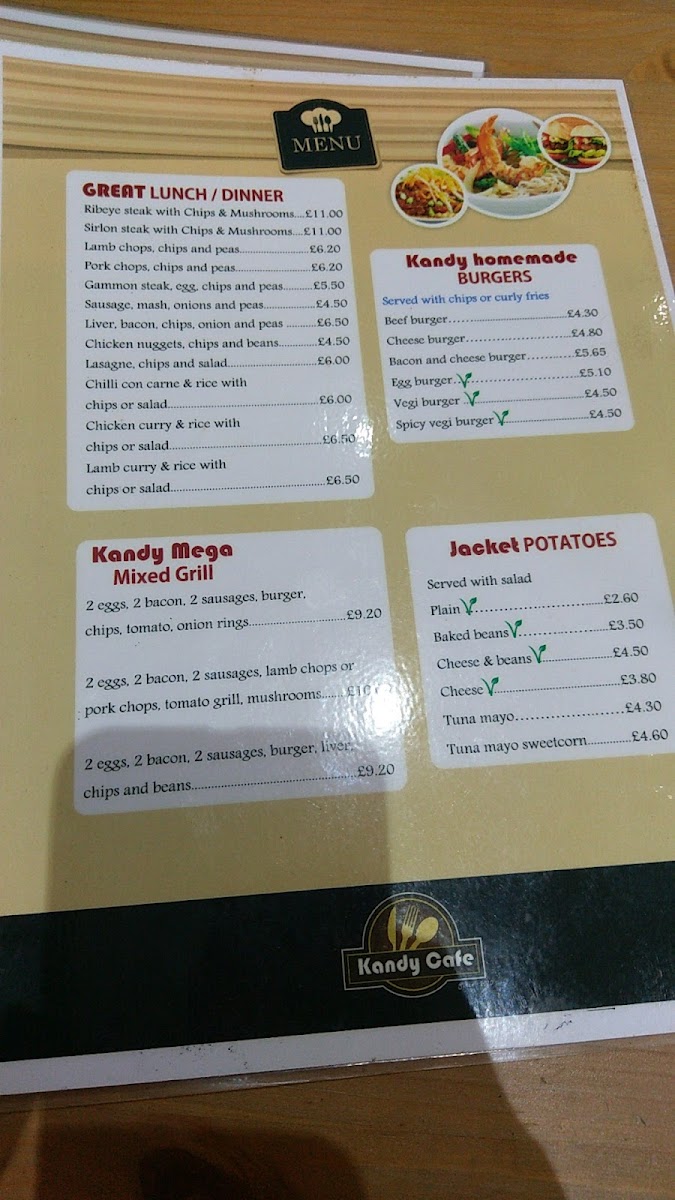 MENU
GREAT LUNCH / DINNER
Ribeye steak with Chips & Mushrooms....£11.00
Sirlon steak with Chips & Mushrooms....£11.00
Lamb chops, chips and peas........................£6.20
Pork chops, chips and peas.........................£6.20
Gammon steak, egg, chips and peas..........£5.50
Sausage, mash, onions and peas....................£4.50
Liver, bacon, chips, onion and peas ..........£6.50
Chicken nuggets, chips and beans.............£4.50
Lasagne, chips and salad.............................£6.00
Chilli con carne & rice with
chips or salad..................................................£6.00
Chicken curry & rice with
chips or salad..................................................£6.50
Lamb curry & rice with
chips or salad..................................................£6.50
Kandy homemade
BURGERS
Served with chips or curly fries
Beef burger..............................£4.30
Cheese burger...........................£4.80
Bacon and cheese burger............£5.65
Egg burger..............................£5.10
Vegi burger ..............................£4.50
Spicy vegi burger......................£4.50
Kandy Mega
Mixed Grill
2 eggs, 2 bacon, 2 sausages, burger,
chips, tomato, onion rings.............................£9.20
2 eggs, 2 bacon, 2 sausages, lamb chops or
pork chops, tomato grill, mushrooms.......
2 eggs, 2 bacon, 2 sausages, burger, liver,
chips and beans..................................................£9.20
Jacket POTATOES
Served with salad
Plain..............................£2.60
Baked beans......................£3.50
Cheese & beans....................£4.50
Cheese..............................£3.80
Tuna mayo........................£4.30
Tuna mayo sweetcorn.............£4.60
Kandy Cafe